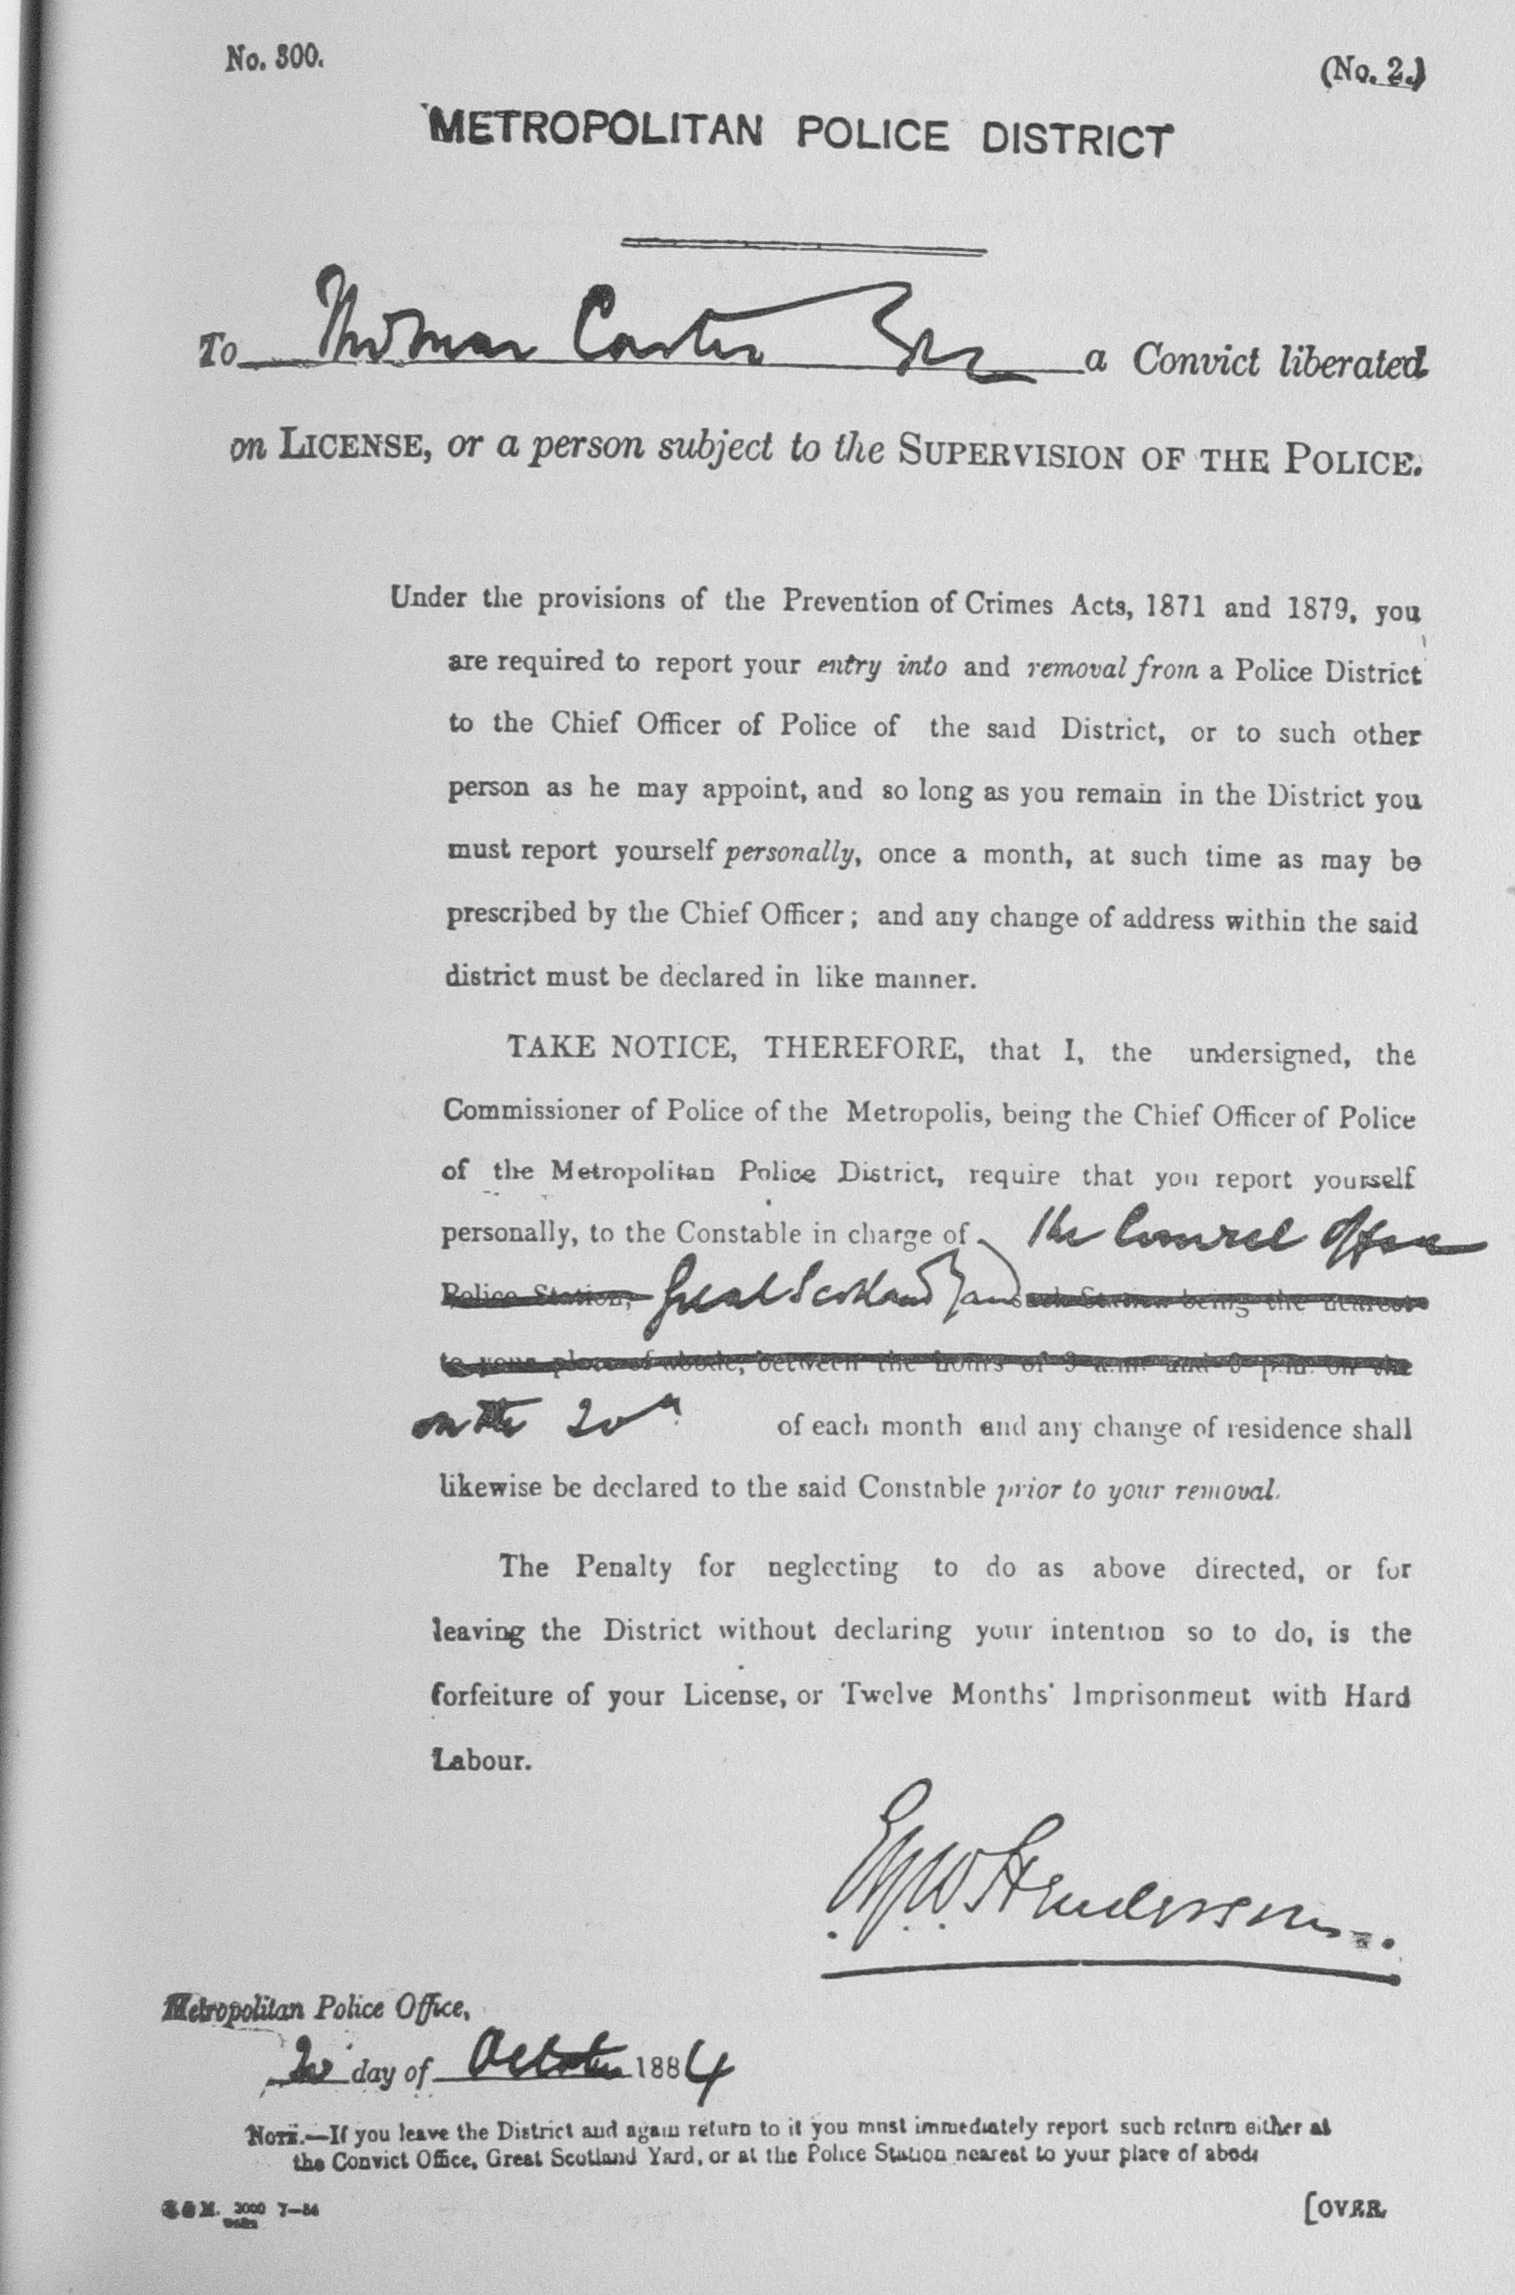 No. 300.
(No. 2.)
METROPOLITAN POLICE DISTRICT
To Thomas Carter a Convict liberated
on LICENSE, or a person subject to the SUPERVISION OF THE POLICE.
Under the provisions of the Prevention of Crimes Acts, 1871 and 1879, you
are required to report your entry into and removal from a Police District
to the Chief Officer of Police of the said District, or to such other
person as he may appoint, and so long as you remain in the District you
must report yourself personally, once a month, at such time as may be
prescribed by the Chief Officer; and any change of address within the said
district must be declared in like manner.
TAKE NOTICE, THEREFORE, that I, the undersigned, the
Commissioner of Police of the Metropolis, being the Chief Officer of Police
of the Metropolitan Police District, require that you report yourself
personally, to the Constable in charge of the Convict Office
Police Station, Great Scotland Yard such Station being the nearest
to your place of abode, between the hours of 9 a.m. and 9 p.m. on the
on the 20th of each month and any change of residence shall
likewise be declared to the said Constable prior to your removal.
The Penalty for neglecting to do as above directed, or for
leaving the District without declaring your intention so to do, is the
forfeiture of your License, or Twelve Months' Imprisonment with Hard
Labour.
EYW Henderson
Metropolitan Police Office,
20 day of October 1884
NOTE.—If you leave the District and again return to it you must immediately report such return either at
the Convict Office, Great Scotland Yard, or at the Police Station nearest to your place of abode
3000 7—84
[OVER.